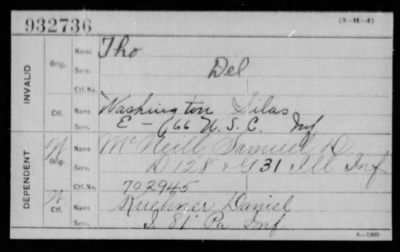 932736 (3-II-4)
INVALID
Orig.
Name Tho
Serv. Del
Ctf. No.
Ctf.
Name Washington Silas
Serv. E - 66 U.S.C. Inf
DEPENDENT
W Orig.
Name McNeill Samuel D
Serv. D 128 & G 31 Ill Inf
Ctf. No. 702945
W Ctf.
Name Kuehner Daniel
Serv. I. 81" Pa Inf